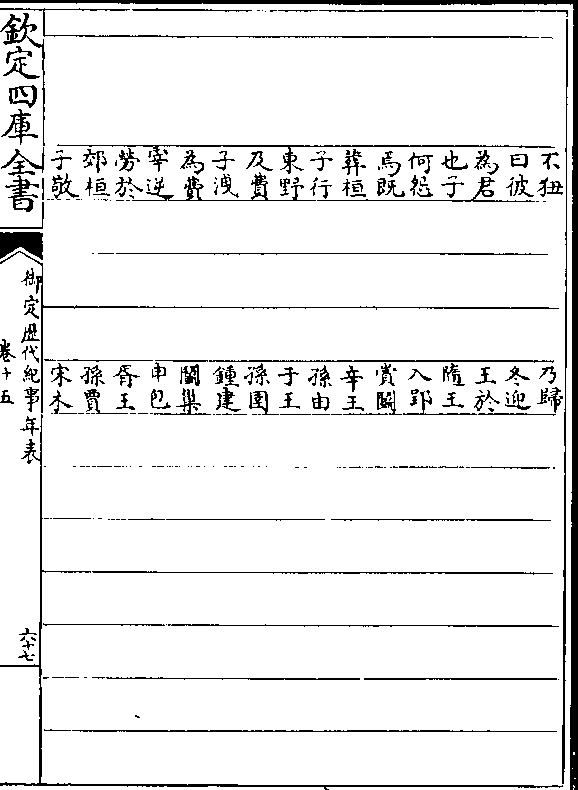 不狃
曰彼
為君
也子
何怨
焉既
葬桓
子行
東野
及費
子洩
為費
宰逆
勞於
郊桓
子敬
乃歸
冬迎
王於
隨王
入郢
賞鬭
辛王
孫由
于王
孫圉
鍾建
鬭巢
申包
胥王
孫賈
宋木
欽定四庫全書
御定歴代紀事年表
卷十五
六十七